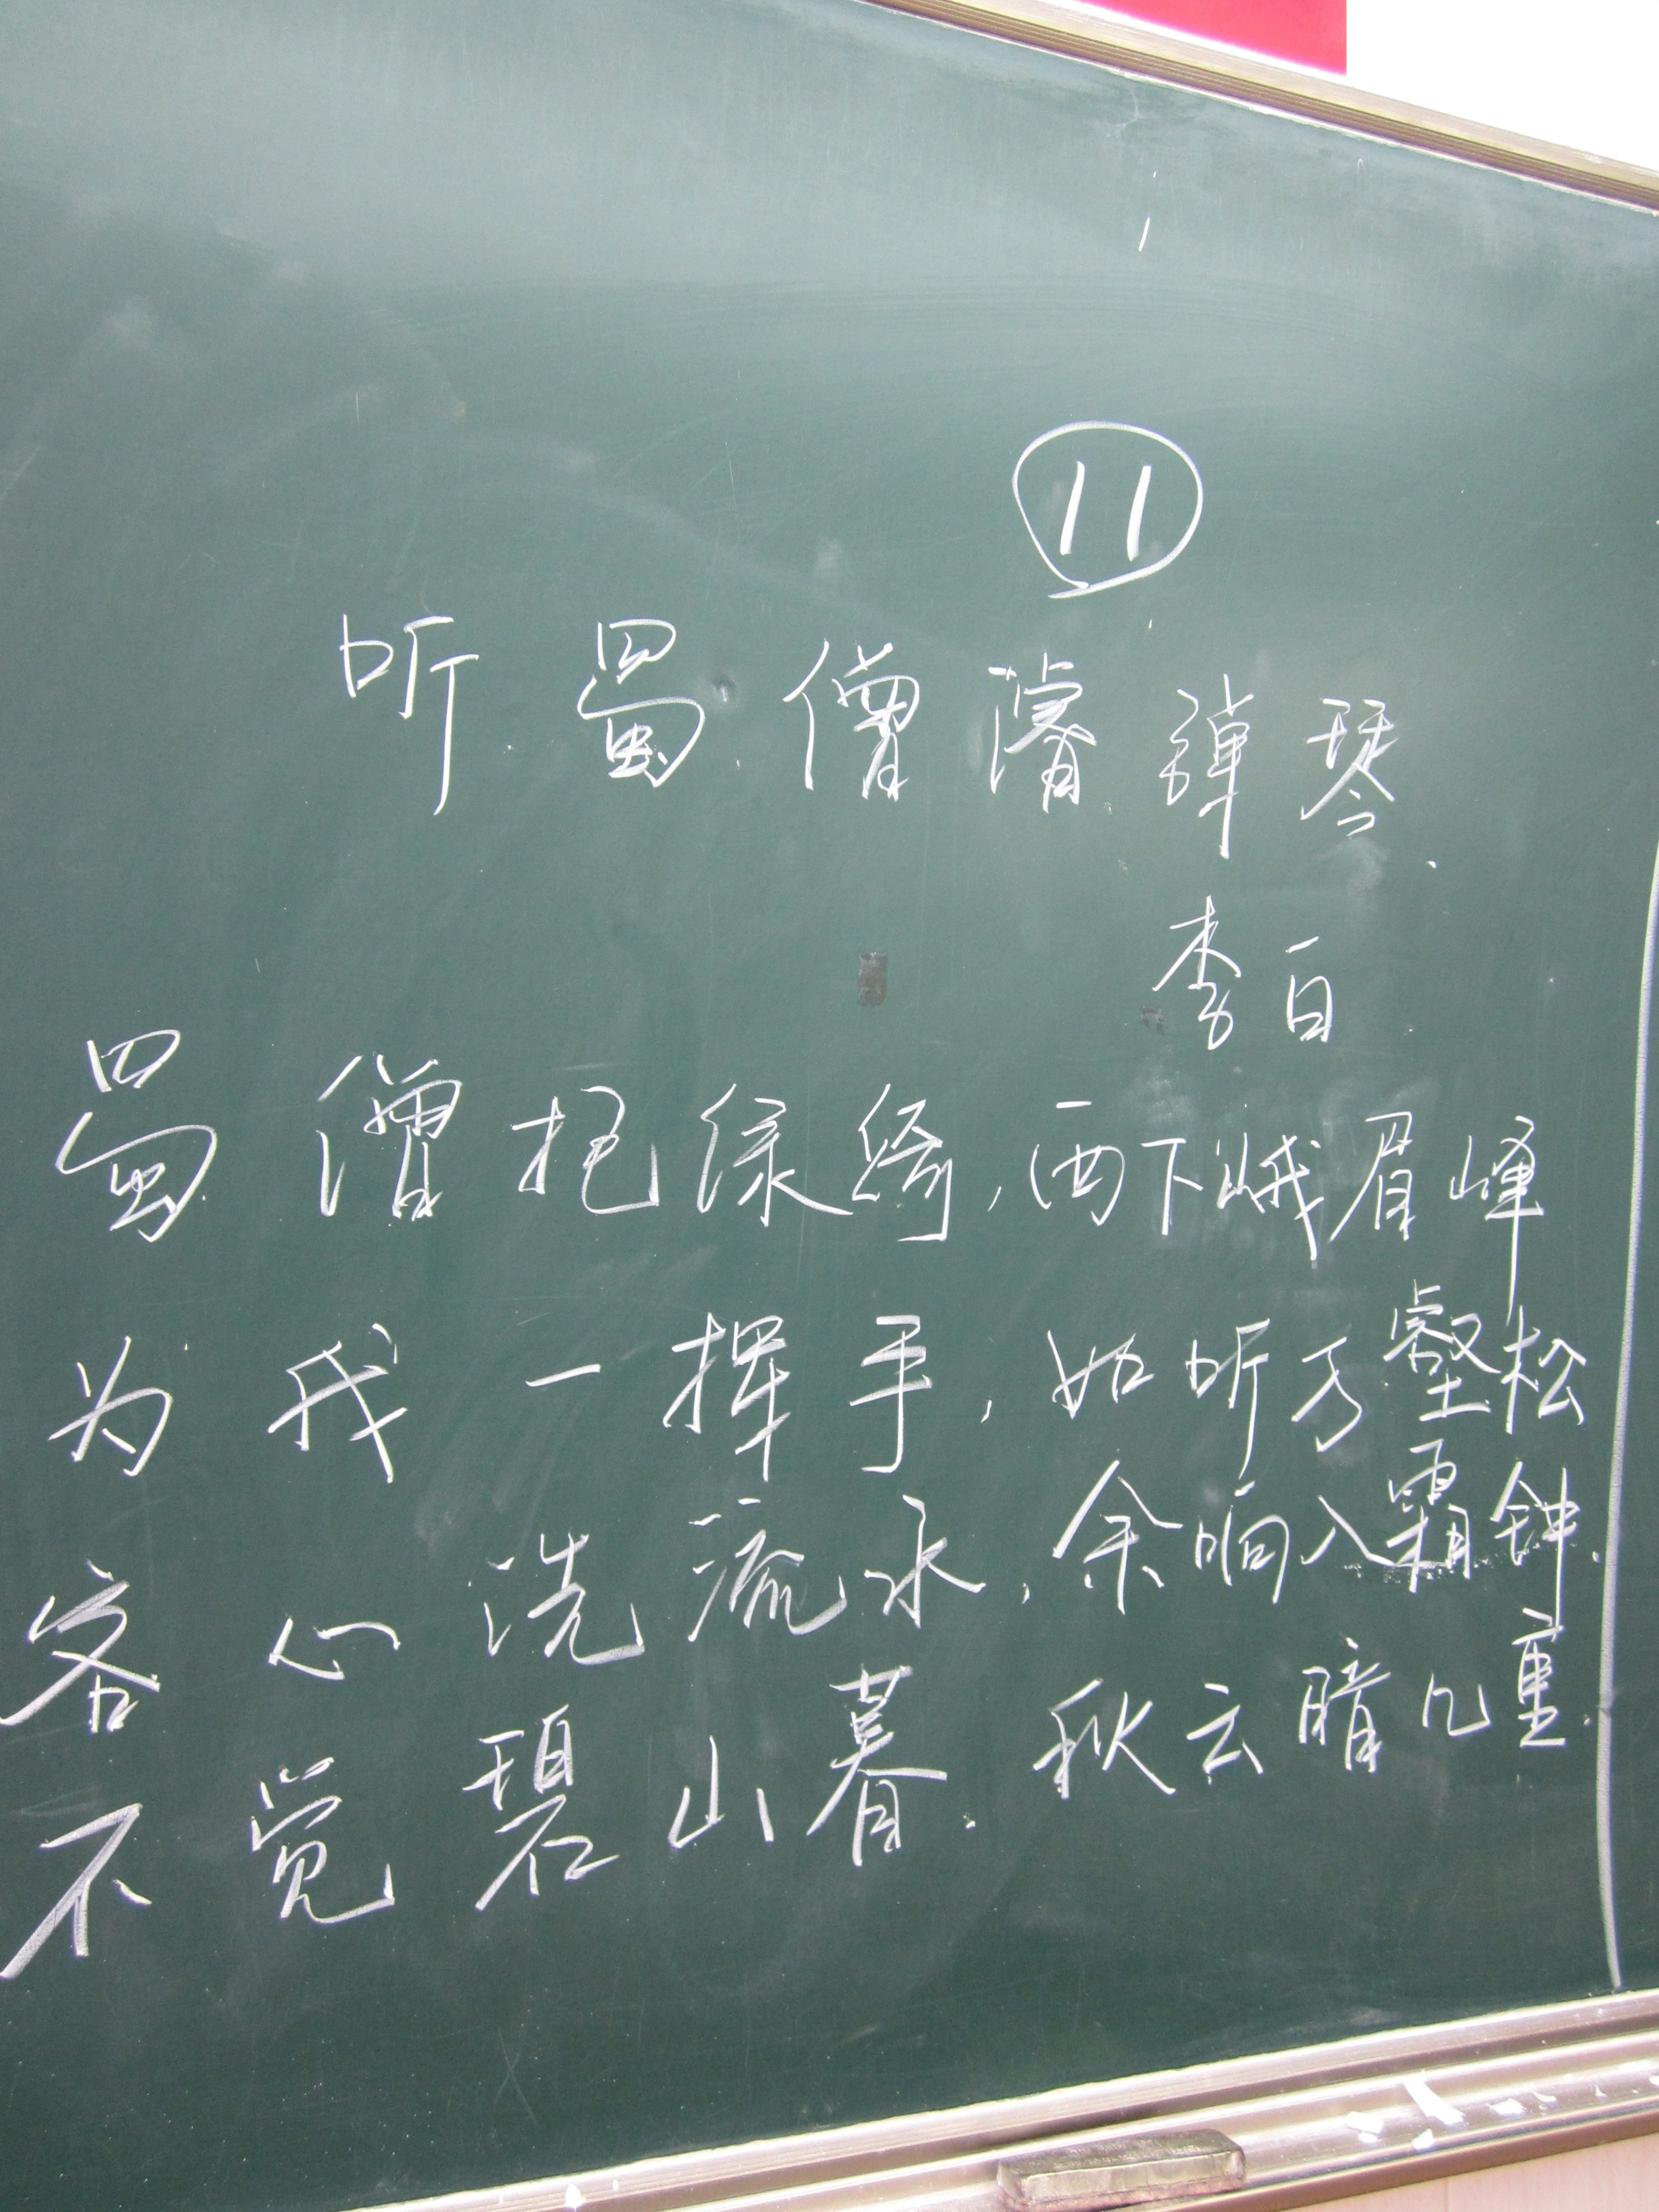 11
听蜀僧濬弹琴
李白
蜀僧抱绿绮,西下峨眉峰
为我一挥手,如听万壑松
客心洗流水,余响入霜钟.
不觉碧山暮.秋云暗几重.